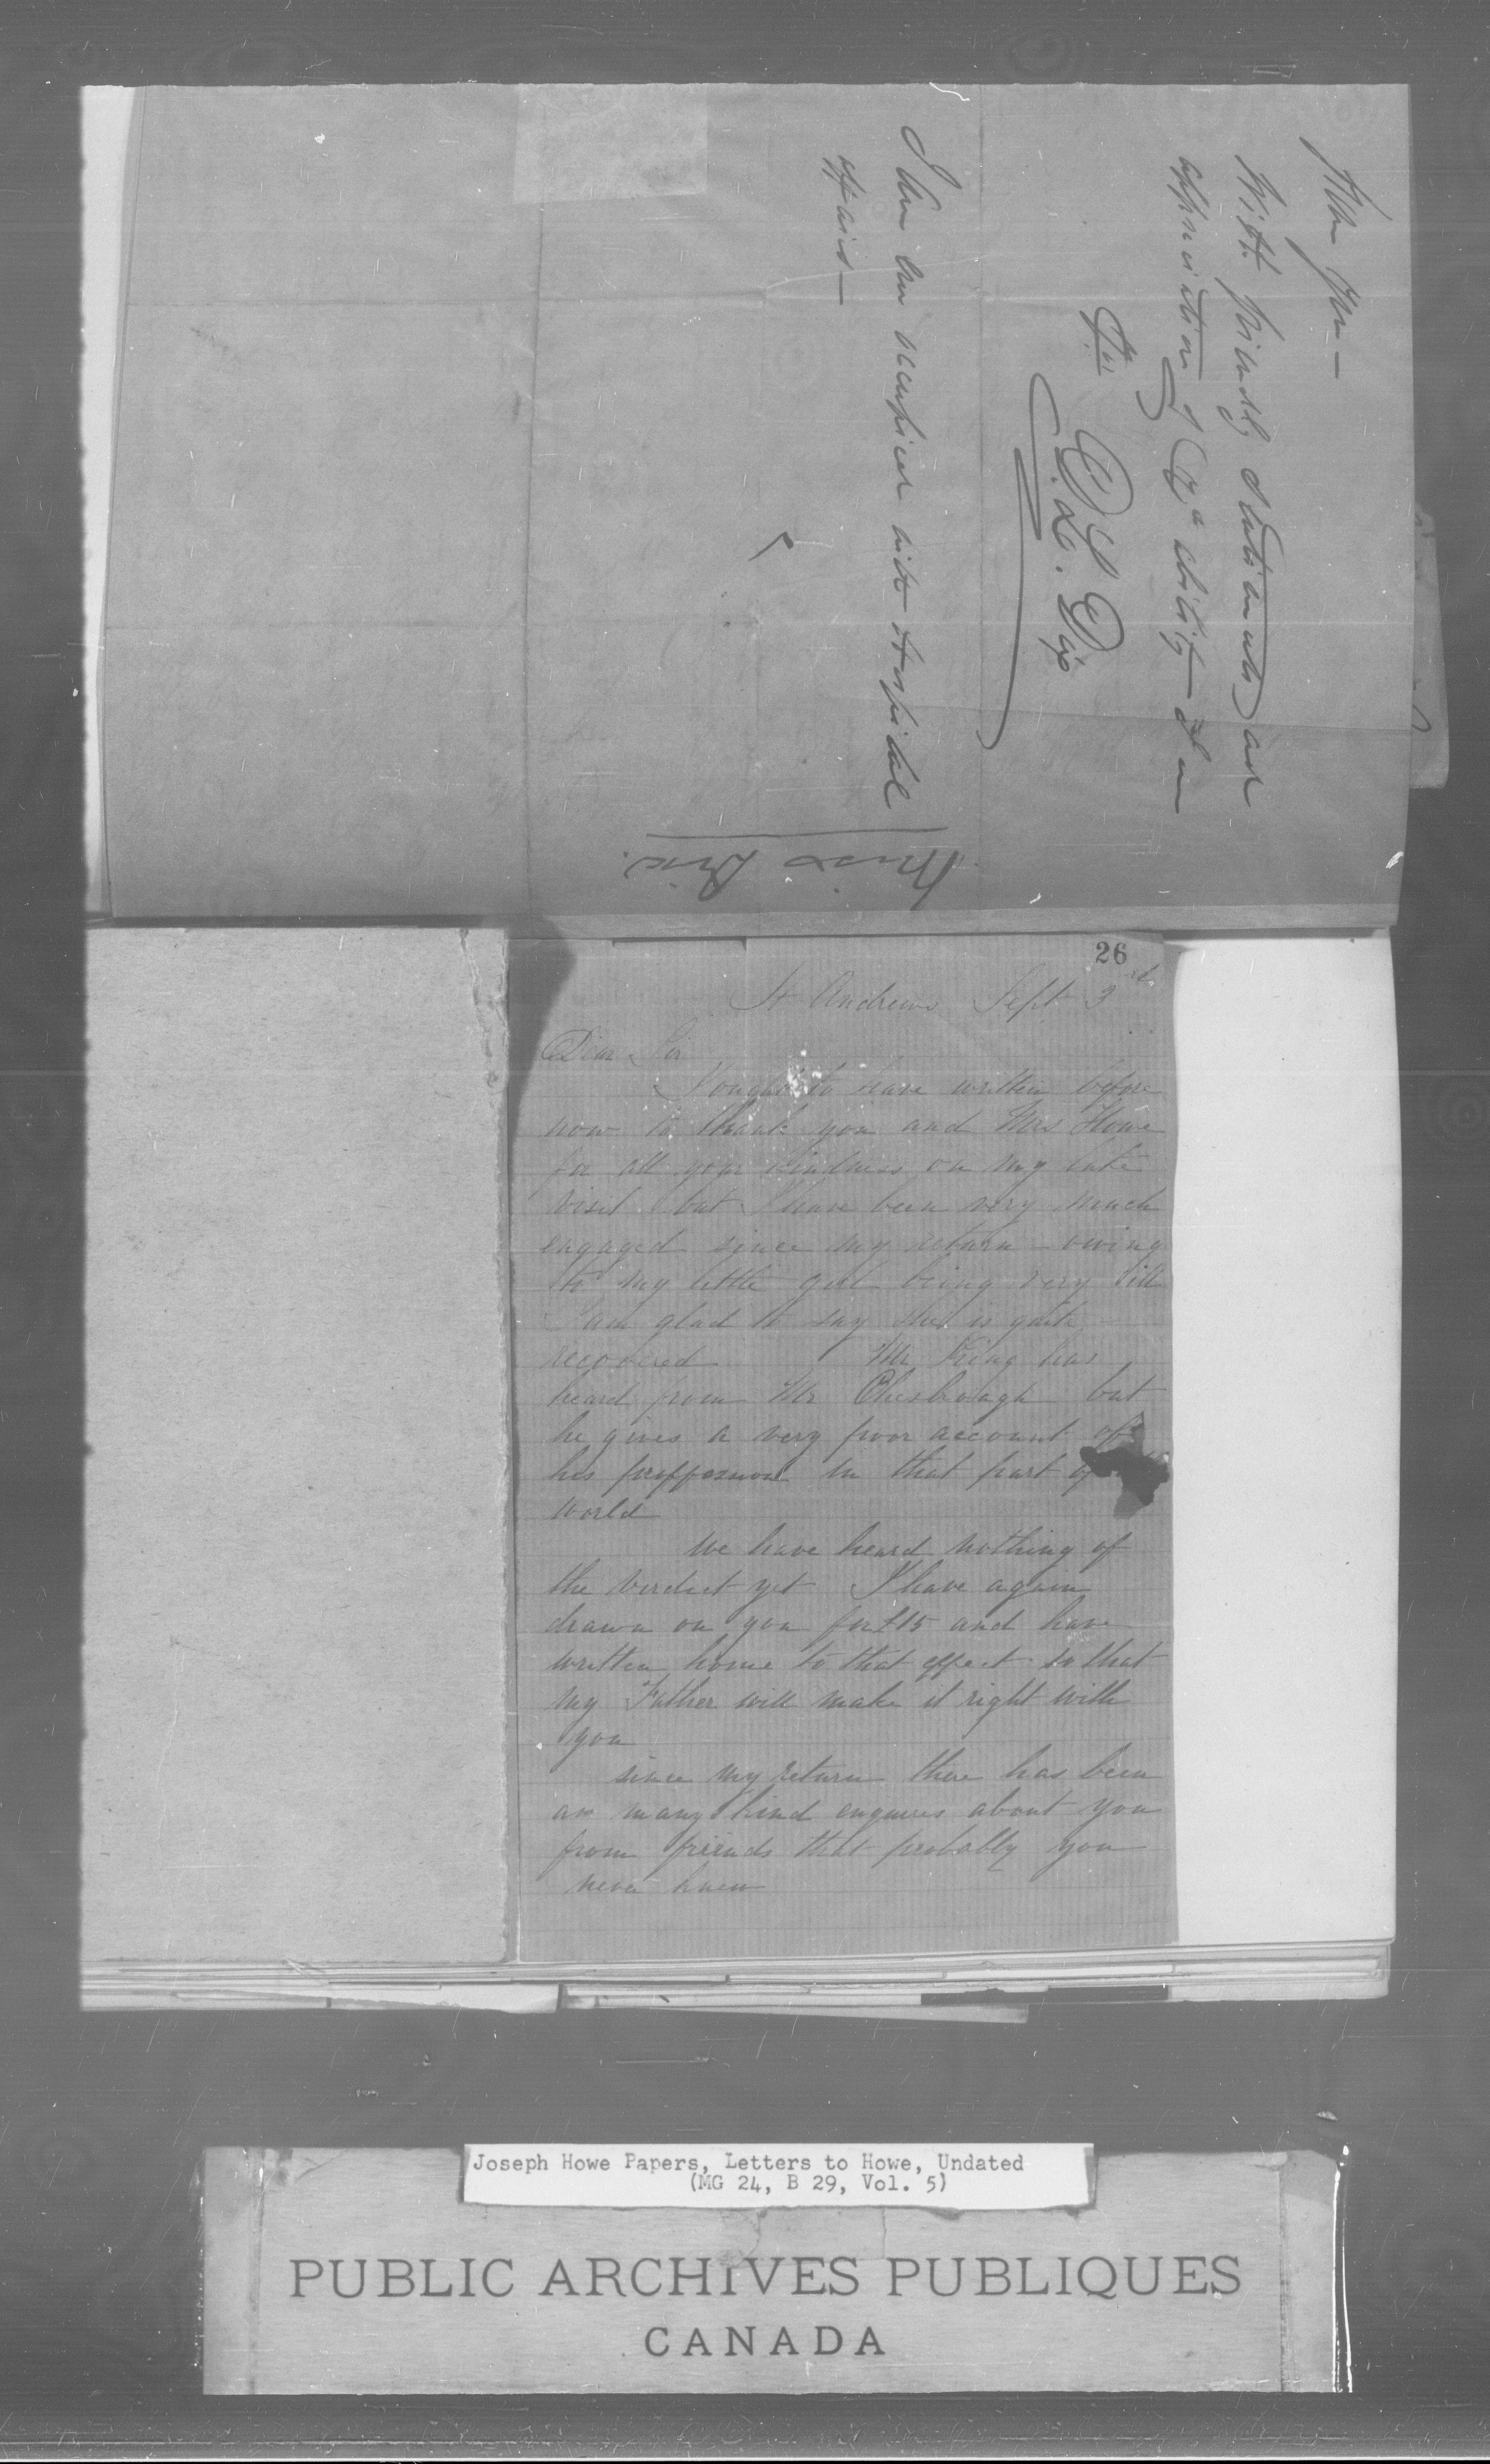 With friendly sentiments and
appreciation of ability I am
D. L. Dix
I am occupied with Hospital
affairs —
Miss Dix.
26
St Andrews Sept 3rd
Dear Sir
I ought to have written before
now to thank you and Mrs Howe
for all your kindness on my late
visit but I have been very much
engaged since my return – owing
to my little girl being very ill
I am glad to say she is quite –
recovered Mr King has
heard from Mr Chesbough but
he gives a very poor account of
his proffession in that part of
world
We have heard nothing of
the verdict yet I have again
drawn on you for £15 and have
written home to that effect so that
my Father will make it right with
you
since my return there has been
as many kind enquires about you
from friends that probably you
never knew
Joseph Howe Papers, Letters to Howe, Undated
(MG 24, B 29, Vol. 5)
PUBLIC ARCHIVES PUBLIQUES
CANADA